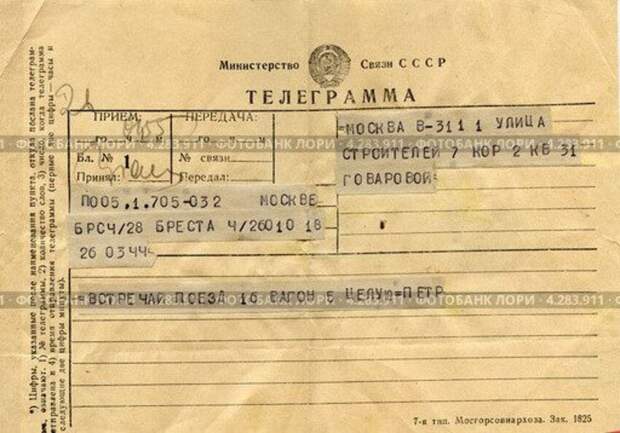 Министерство Связи СССР
ТЕЛЕГРАММА
ПРИЕМ: ПЕРЕДАЧА:
го ч. м го ч. м
Бл. № 1 № связи
Принял: Передал:
МОСКВА В-311 1 УЛИЦА
СТРОИТЕЛЕЙ 7 КОР 2 КВ 31
ГОВАРОВОЙ=
П005,1.705-032 МОСКВЕ
БРСЧ/28 БРЕСТА Ч/26010 18
26 0344=
=ВСТРЕЧАЙ ПОЕЗД 16 ВАГОН 5 ЦЕЛУЮ=ПЕТР
*) Цифры, указанные после наименования пункта, откуда послана телеграм-
означают: 1) № телеграммы, 2) количество слов, 3) число, когда телеграмма
отправлена и 4) время отправления телеграммы (первые две цифры—часы и
следующие две цифры минуты).
7-я тип. Мосгорсовнархоза. Зак. 1825
ФОТОБАНК ЛОРИ · 4.283.911
ФОТОБАНК ЛОРИ · 4.283.911